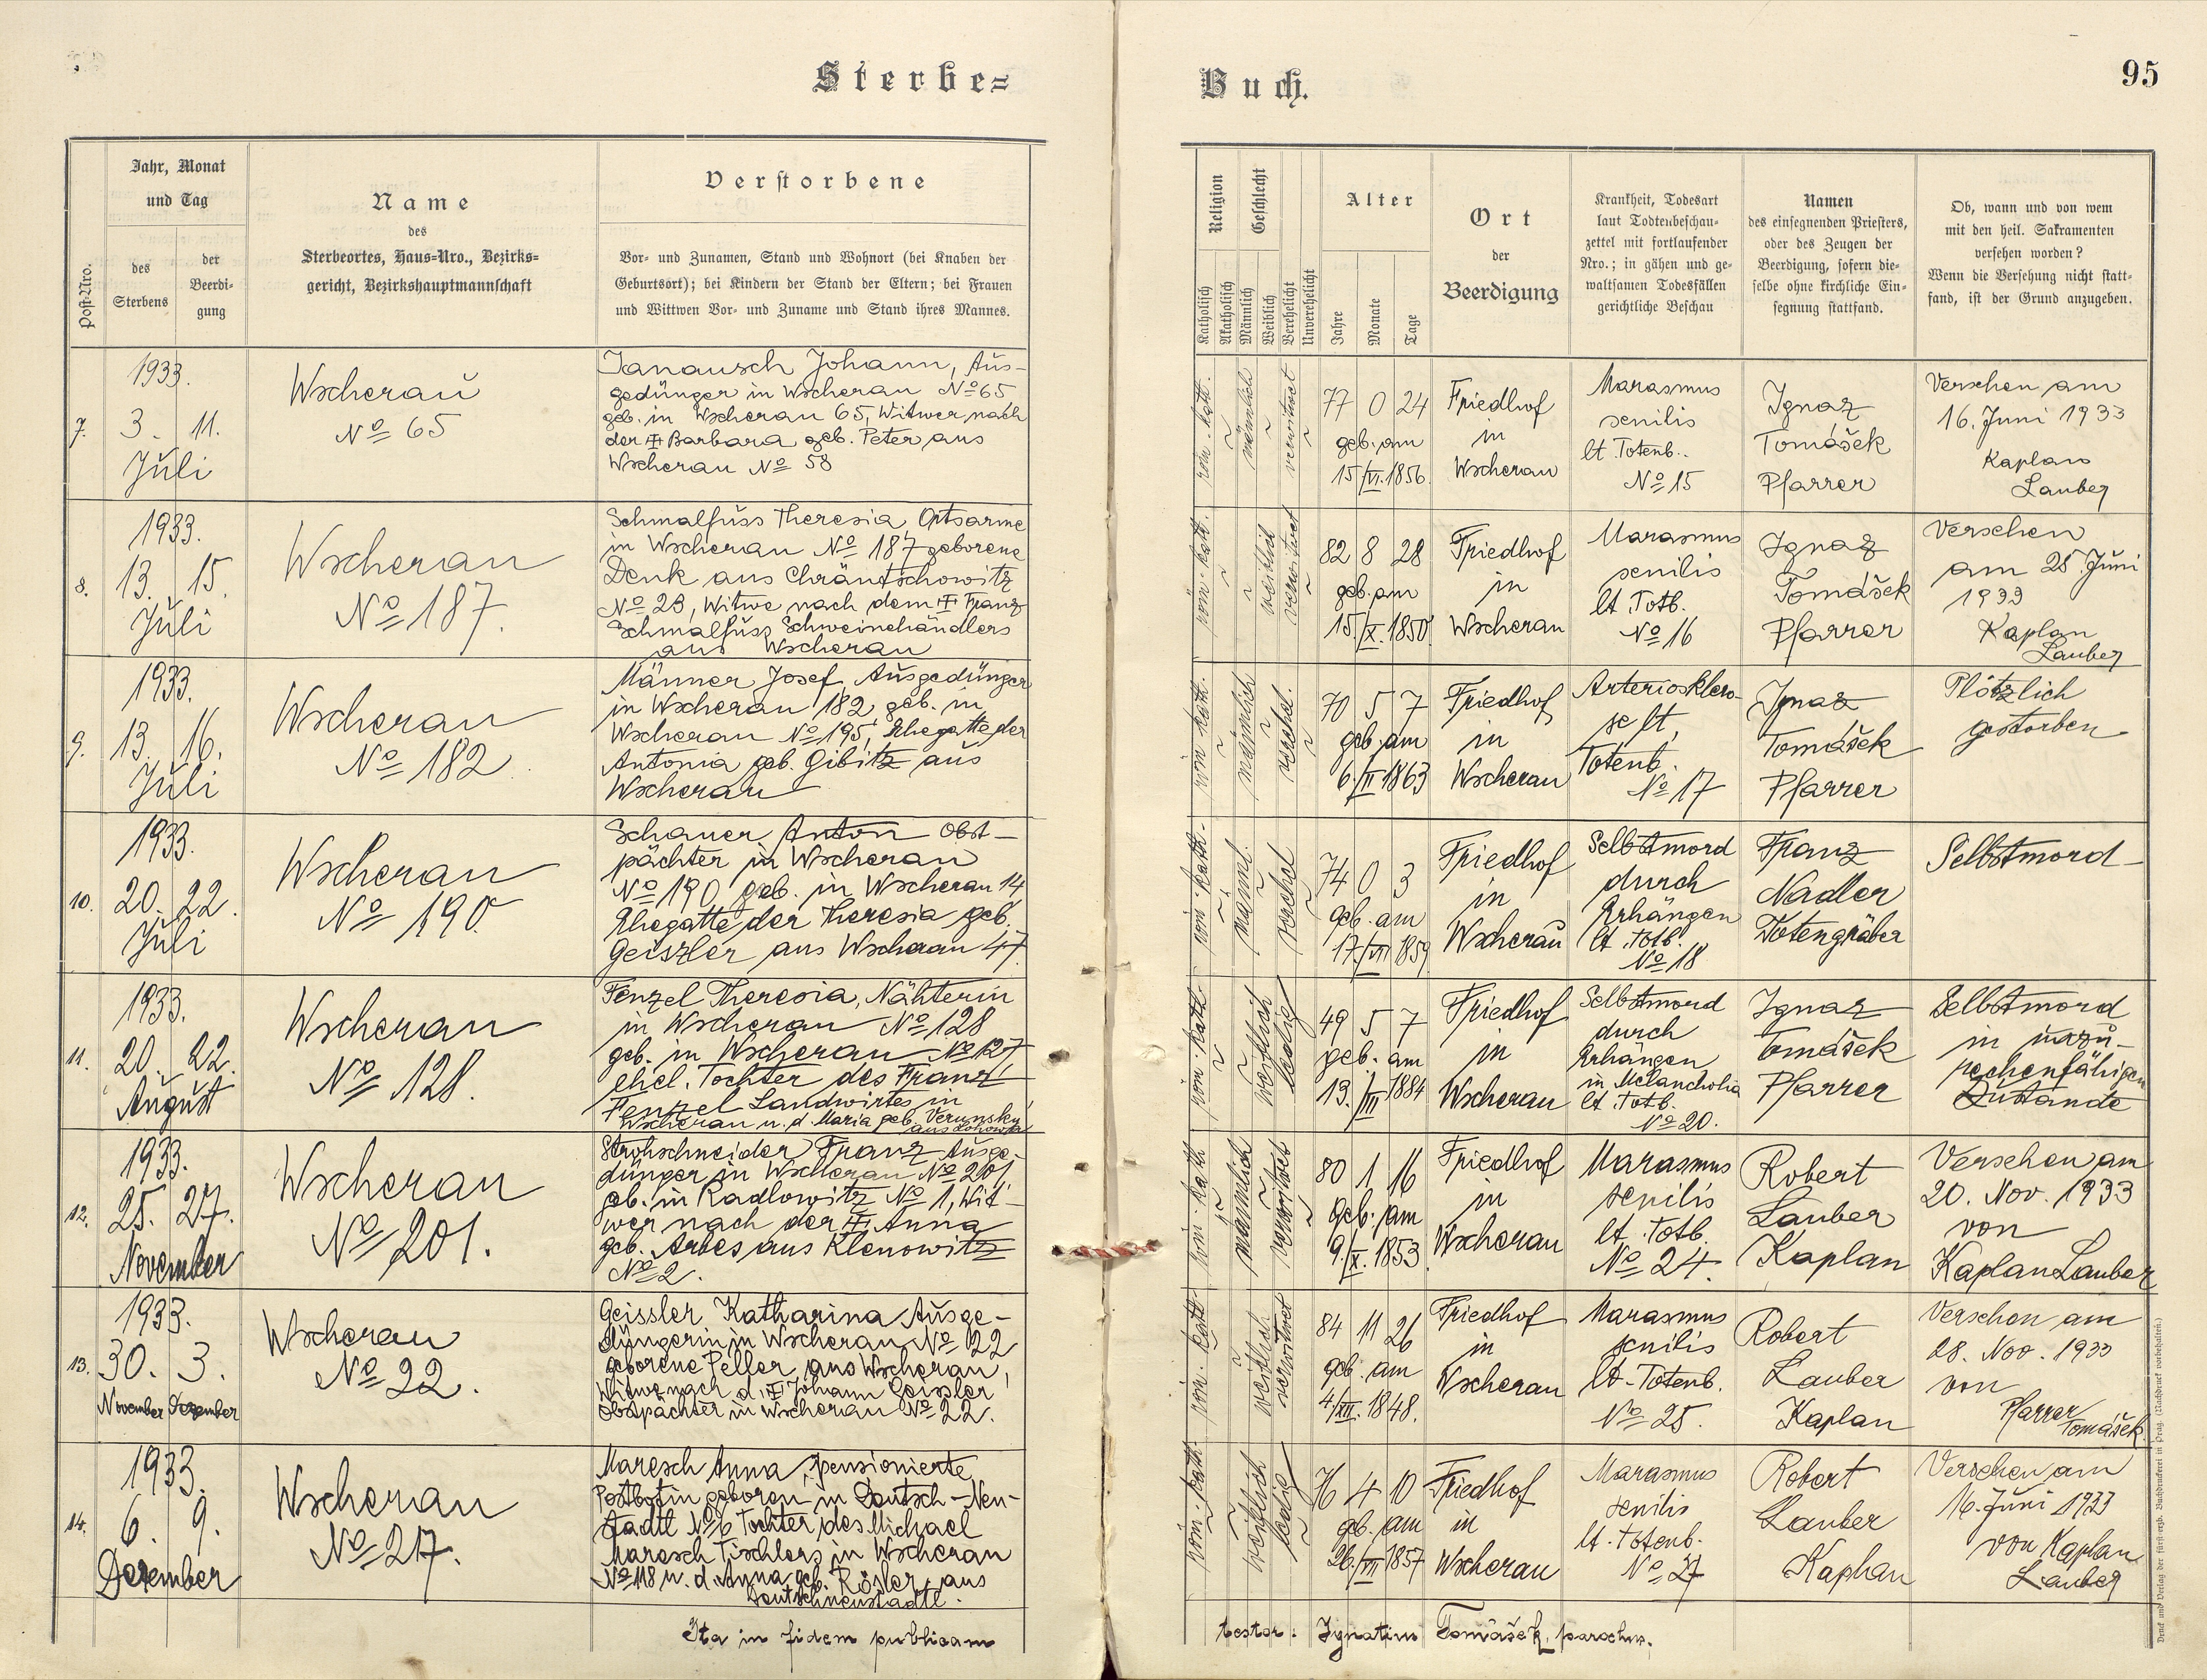 Sterbe=
Buch.
95
Post-Nro.
Jahr, Monat
und Tag
des
Sterbens
der
Beerdi-
gung
Name
des
Sterbeortes, Haus=Nro., Bezirks=
gericht, Bezirkshauptmannschaft
Verstorbene
Vor- und Zunamen, Stand und Wohnort (bei Knaben der
Geburtsort); bei Kindern der Stand der Eltern; bei Frauen
und Wittwen Vor- und Zuname und Stand ihres Mannes.
Religion
Katholisch
Akatholisch
Geschlecht
Männlich
Weiblich
Verehelicht
Unverehelicht
Alter
Jahre
Monate
Tage
Ort
der
Beerdigung
Krankheit, Todesart
laut Todtenbeschau-
zettel mit fortlaufender
Nro.; in gähen und ge-
waltsamen Todesfällen
gerichtliche Beschau
Namen
des einsegnenden Priesters,
oder des Zeugen der
Beerdigung, sofern die-
selbe ohne kirchliche Ein-
segnung stattfand.
Ob, wann und von wem
mit den heil. Sakramenten
versehen worden?
Wenn die Versehung nicht statt-
fand, ist der Grund anzugeben.
7.
1933.
3. 11.
Juli
Wscherau
No 65
Janausch Johann, Aus-
gedünger in Wscherau No 65
geb. in Wscherau 65, Witwer nach
der Barbara geb. Peter aus
Wscherau No 58
röm. kath.
männlich
verwitwet
77 0 24
geb. am
15/VI. 1856.
Friedhof
in
Wscherau
Marasmus
senilis
lt. Totenb..
No 15
Ignaz
Tomášek
Pfarrer
Versehen am
16. Juni 1933
Kaplan
Lauber
8.
1933.
13. 15.
Juli
Wscherau
No 187.
Schmalfuss Theresia, Ortsarme
in Wscherau No 187 geborene
Denk aus Chräntschowitz
No 23, Witwe nach dem Franz
Schmalfuss Schweinehändlers
aus Wscherau
röm. kath.
weiblich
verwitwet
82 8 28
geb. am
15./X. 1850.
Friedhof
in
Wscherau
Marasmus
senilis
lt. Totb.
No 16
Ignaz
Tomášek
Pfarrer
Versehen
am 28. Juni
1933
Kaplan
Lauber
9.
1933.
13. 16.
Juli
Wscherau
No 182
Männer Josef, Ausgedünger
in Wscherau 182, geb. in
Wscherau No 195, Ehegatte der
Antonia geb. Gibitz aus
Wscherau
röm. kath.
männlich
verehel.
70 5 7
geb. am
6./II 1863
Friedhof
in
Wscherau
Arterioskléro-
se lt.
Totenb.
No 17
Ignaz
Tomášek
Pfarrer
Plötzlich
gestorben
10.
1933.
20. 22.
Juli
Wscherau
No 190.
Schauer Anton Obst-
pächter in Wscherau
No 190 geb. in Wscherau 14
Ehegatte der Theresia geb.
Geiszler aus Wscherau 47.
röm. kath.
männl.
verehel
74 0 3
geb. am
17./VII 1859
Friedhof
in
Wscherau
Selbstmord
durch
Erhängen
lt. Totb.
No 18
Franz
Nadler
Totengräber
Selbstmord
11.
1933.
20. 22.
August
Wscherau
No 128.
Fenzel Theresia, Nähterin
in Wscherau No 128
geb. in Wscherau No 127,
ehel. Tochter des Franz
Fenzel Landwirtes in
Wscherau u. d. Maria geb. Verunsky
röm. kath.
weiblich
ledig
49 5 7
geb. am
13./III 1884
Friedhof
in
Wscherau
Selbstmord
durch
Erhängen
in Melancholia
lt. Totb.
No 20.
Ignaz
Tomášek
Pfarrer
Selbstmord
in unzu-
rechenfähigen
Zustande
12.
1933.
25. 27.
November
Wscherau
No 201.
Strohschneider Franz Ausge-
dünger in Wscherau No 201
geb. in Radlowitz No 1, Wit-
wer nach der Anna
geb. Arbes aus Klenowitz
No 2.
röm. kath
männlich
verwitwet
80 1 16
geb. am
9./X. 1853
Friedhof
in
Wscherau
Marasmus
senilis
lt. Totb.
No 24.
Robert
Lauber
Kaplan
Versehen am
20. Nov. 1933
von
Kaplan Lauber
13.
1933.
30. 3.
November Dezember
Wscherau
No 22.
Geissler Katharina Ausge-
düngerin in Wscherau No 22
geborene Peller, aus Wscherau,
Witwe nach d. Johann Geissler
Obstpächter in Wscherau No 22.
röm. kath
weiblich
verwitwet
84 11 26
geb. am
4/XII. 1848.
Friedhof
in
Wscherau
Marasmus
senilis
lt. Totenb.
No 25.
Robert
Lauber
Kaplan
Versehen am
28. Nov. 1933
von
Pfarrer
Tomášek
14.
1933.
6. 9.
Dezember
Wscherau
No 217.
Maresch Anna, pensionierte
Postbotin geboren in Deutsch-Neu-
stadtl No 6 Tochter des Michael
Maresch Tischlers in Wscherau
No 118 u. d. Anna geb. Rösler, aus
Deutschneustadtl.
röm. kath.
weiblich
ledig
76 4 10
geb. am
26./VII 1857
Friedhof
in
Wscherau
Marasmus
senilis
lt. Totenb.
No 27
Robert
Lauber
Kaplan
Versehen am
16. Juni 1933
von Kaplan
Lauber
Ita in fidem publicam
testor: Ignatius Tomášek, parochus.
Druck und Verlag der fürst-erzb. Buchdruckerei in Prag. (Nachdruck vorbehalten.)